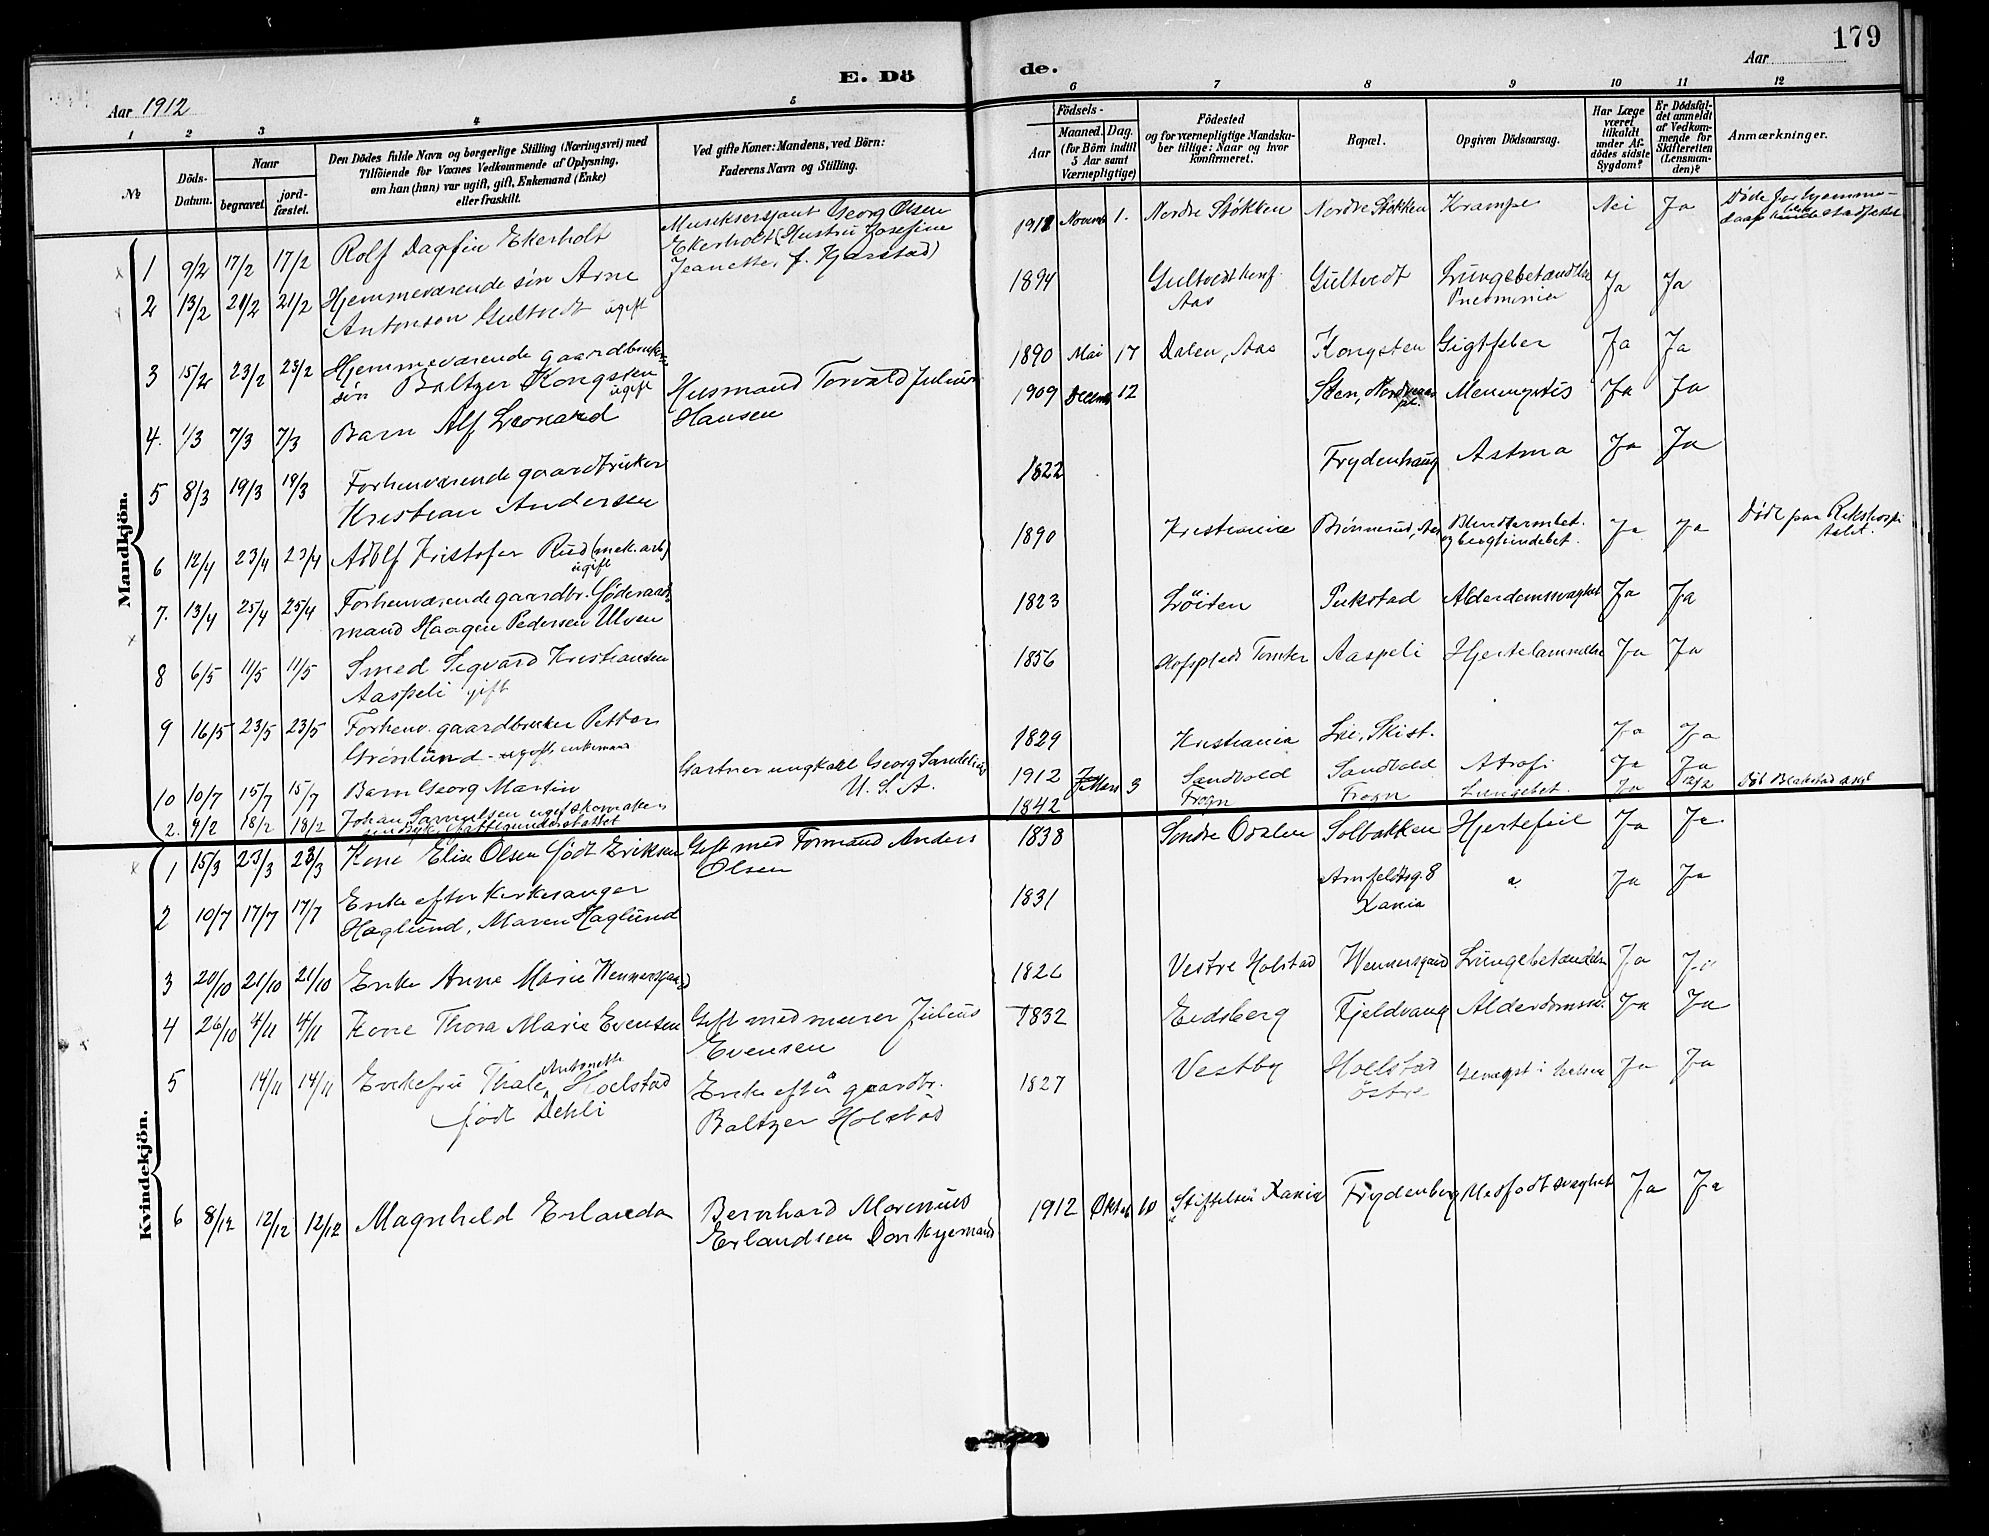 179
E. Dö
de.
Aar 1912
Aar
1 2 3 4 5
6 7 8 9 10 11 12
№
Döds-Datum.
Naar
begravet. jord-fæstet.
Den Dödes fulde Navn og borgerlige Stilling (Næringsvei) med
Tilföiende for Voxnes Vedkommende af Oplysning,
om han (hun) var ugift, gift, Enkemand (Enke)
eller fraskilt.
Ved gifte Koner: Mandens, ved Börn:
Faderens Navn og Stilling.
Födsels-
Aar
Maaned. Dag.
(for Börn indtil
5 Aar samt
Værnepligtige)
Födested
og for værnepligtige Mandska-
ber tillige: Naar og hvor
konfirmeret.
Bopæl.
Opgiven Dödsaarsag.
Har Læge
været
tilkaldt
under Af-
dödes sidste
Sygdom?
Er Dödsfal-
det anmeldt
af Vedkom-
mende for
Skifteretten
(Lensman-
den)?
Anmærkninger.
Mandkjön.
1 9/2 17/2 17/2 Rolf Dagfin Ekerholt
Musiksersjant Georg Olsen
Ekerholt (Hustru Josefine
Jeanette, f. Kjærstad)
1911 Novemb 1. Nordre Støkken Nordre Støkken Krampe Nei Ja
Døde før hjemme-
daab stadfestet
2 13/2 21/2 21/2 Hjemmeværende søn Arne
Antonson Gultvedt ugift
1894 Gultvedt konf. Aas Gultvedt Lungebetændelse Pneumonia Ja Ja
3 15/2 23/2 23/2 Hjemmeværende gaardbruker
søn Baltzer Kongsten ugift
1890 Mai 17 Dalen, Aas Kongsten Gigtfeber Ja Ja
4. 1/3 7/3 7/3 Barn Alf Leonard
Husmand Torvald Julius
Hansen
1909 Decemb 12 Sten, pl. Meningitis Ja Ja
5 8/3 19/3 19/3 Forhenværende gaardbruker
Kristian Andersen
1822 Frydenhaug Astma Ja Ja
6 12/4 23/4 23/4 Adolf Kristofer Rud (mek. arb)
ugift
1890 Kristiania Brønnerud, Aas Blindtarmbet.
og bughindebet. Ja Ja Døde paa Rikshospi
talet.
7. 13/4 25/4 25/4 Forhenværende gaardbr. Føderaads
mand Haagen Pedersen Ulven
1823 Løiten Pukstad Alderdomssvaghet Ja Ja
8 6/5 11/5 11/5 Smed Sigvard Kristiansen
Aaspeli gift
1856 Hofsplads Tomter Aaspeli Hjertelammelse Ja Ja
9 16/5 23/5 23/5 Forhenv. gaardbruker Petter
Grønlund - ugift, enkemand
1829 Kristiania Lie, Skist. Ja Ja
10 10/7 15/7 15/7 Barn Georg Martin
Gartner ungkarl Georg Sandelius
U. S. A.
1912 Mars 3 Sandvold Sandvold Atrofi Ja Ja
2. 9/2 18/2 18/2 Johan Samuelsen ugift skomaker
1842 Frogn Frogn Lungebet. Ja Død Blakstad asyl
Kvindekjön.
1 15/3 23/3 23/3 Kone Elise Olsen født Eriksen
Gift med Formand Anders
Olsen
1838 Søndre Odalen Solbakken Hjertefeil Ja Ja
2 10/7 17/7 17/7 Enke efter kirkesanger
Haglund, Maren Haglund
1831 Arnfeldtsg. 8
Xania Ja Ja
3 20/10 21/10 21/10 Enke Anne Marie Wennersgaard
1826 Vestre Holstad Wennersgaard Lungebetændelse Ja Ja
4 26/10 4/11 4/11 Kone Thora Marie Evensen
Gift med murer Julius
Evensen
1832 Eidsberg Fjeldvang Alderdomssv. Ja Ja
5 14/11 14/11 Enkefru Thale Antonette Holstad
født Dehli
Enke efter gaardbr.
Baltzer Holstad
1827 Vestby Holstad
østre i halsen Ja Ja
6 8/12 12/12 12/12 Magnhild Erlanda
Bernhard Marenius
Erlandsen Donkyemand
1912 Oktob 10 Stiftelsen Xania Frydenberg Medfødt svaghet Ja Ja